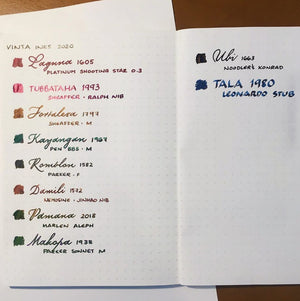 VINTA INKS 2020
Laguna 1605
PLATINUM SHOOTING STAR 0.3
TUBBATAHA 1993
SHEAFFER - RALPH NIB
Fortaleza 1797
SHEAFFER - M
Kayangan 1967
PEN BBS - M
Romblon 1582
PARKER - F
Damili 1572
NEMOSINE - JINHAO NIB
Pamana 2018
MARLEN ALEPH
Makopa 1938
PARKER SONNET M
Ubi 1663
NOODLER'S KONRAD
TALA 1980
LEONARDO STUB